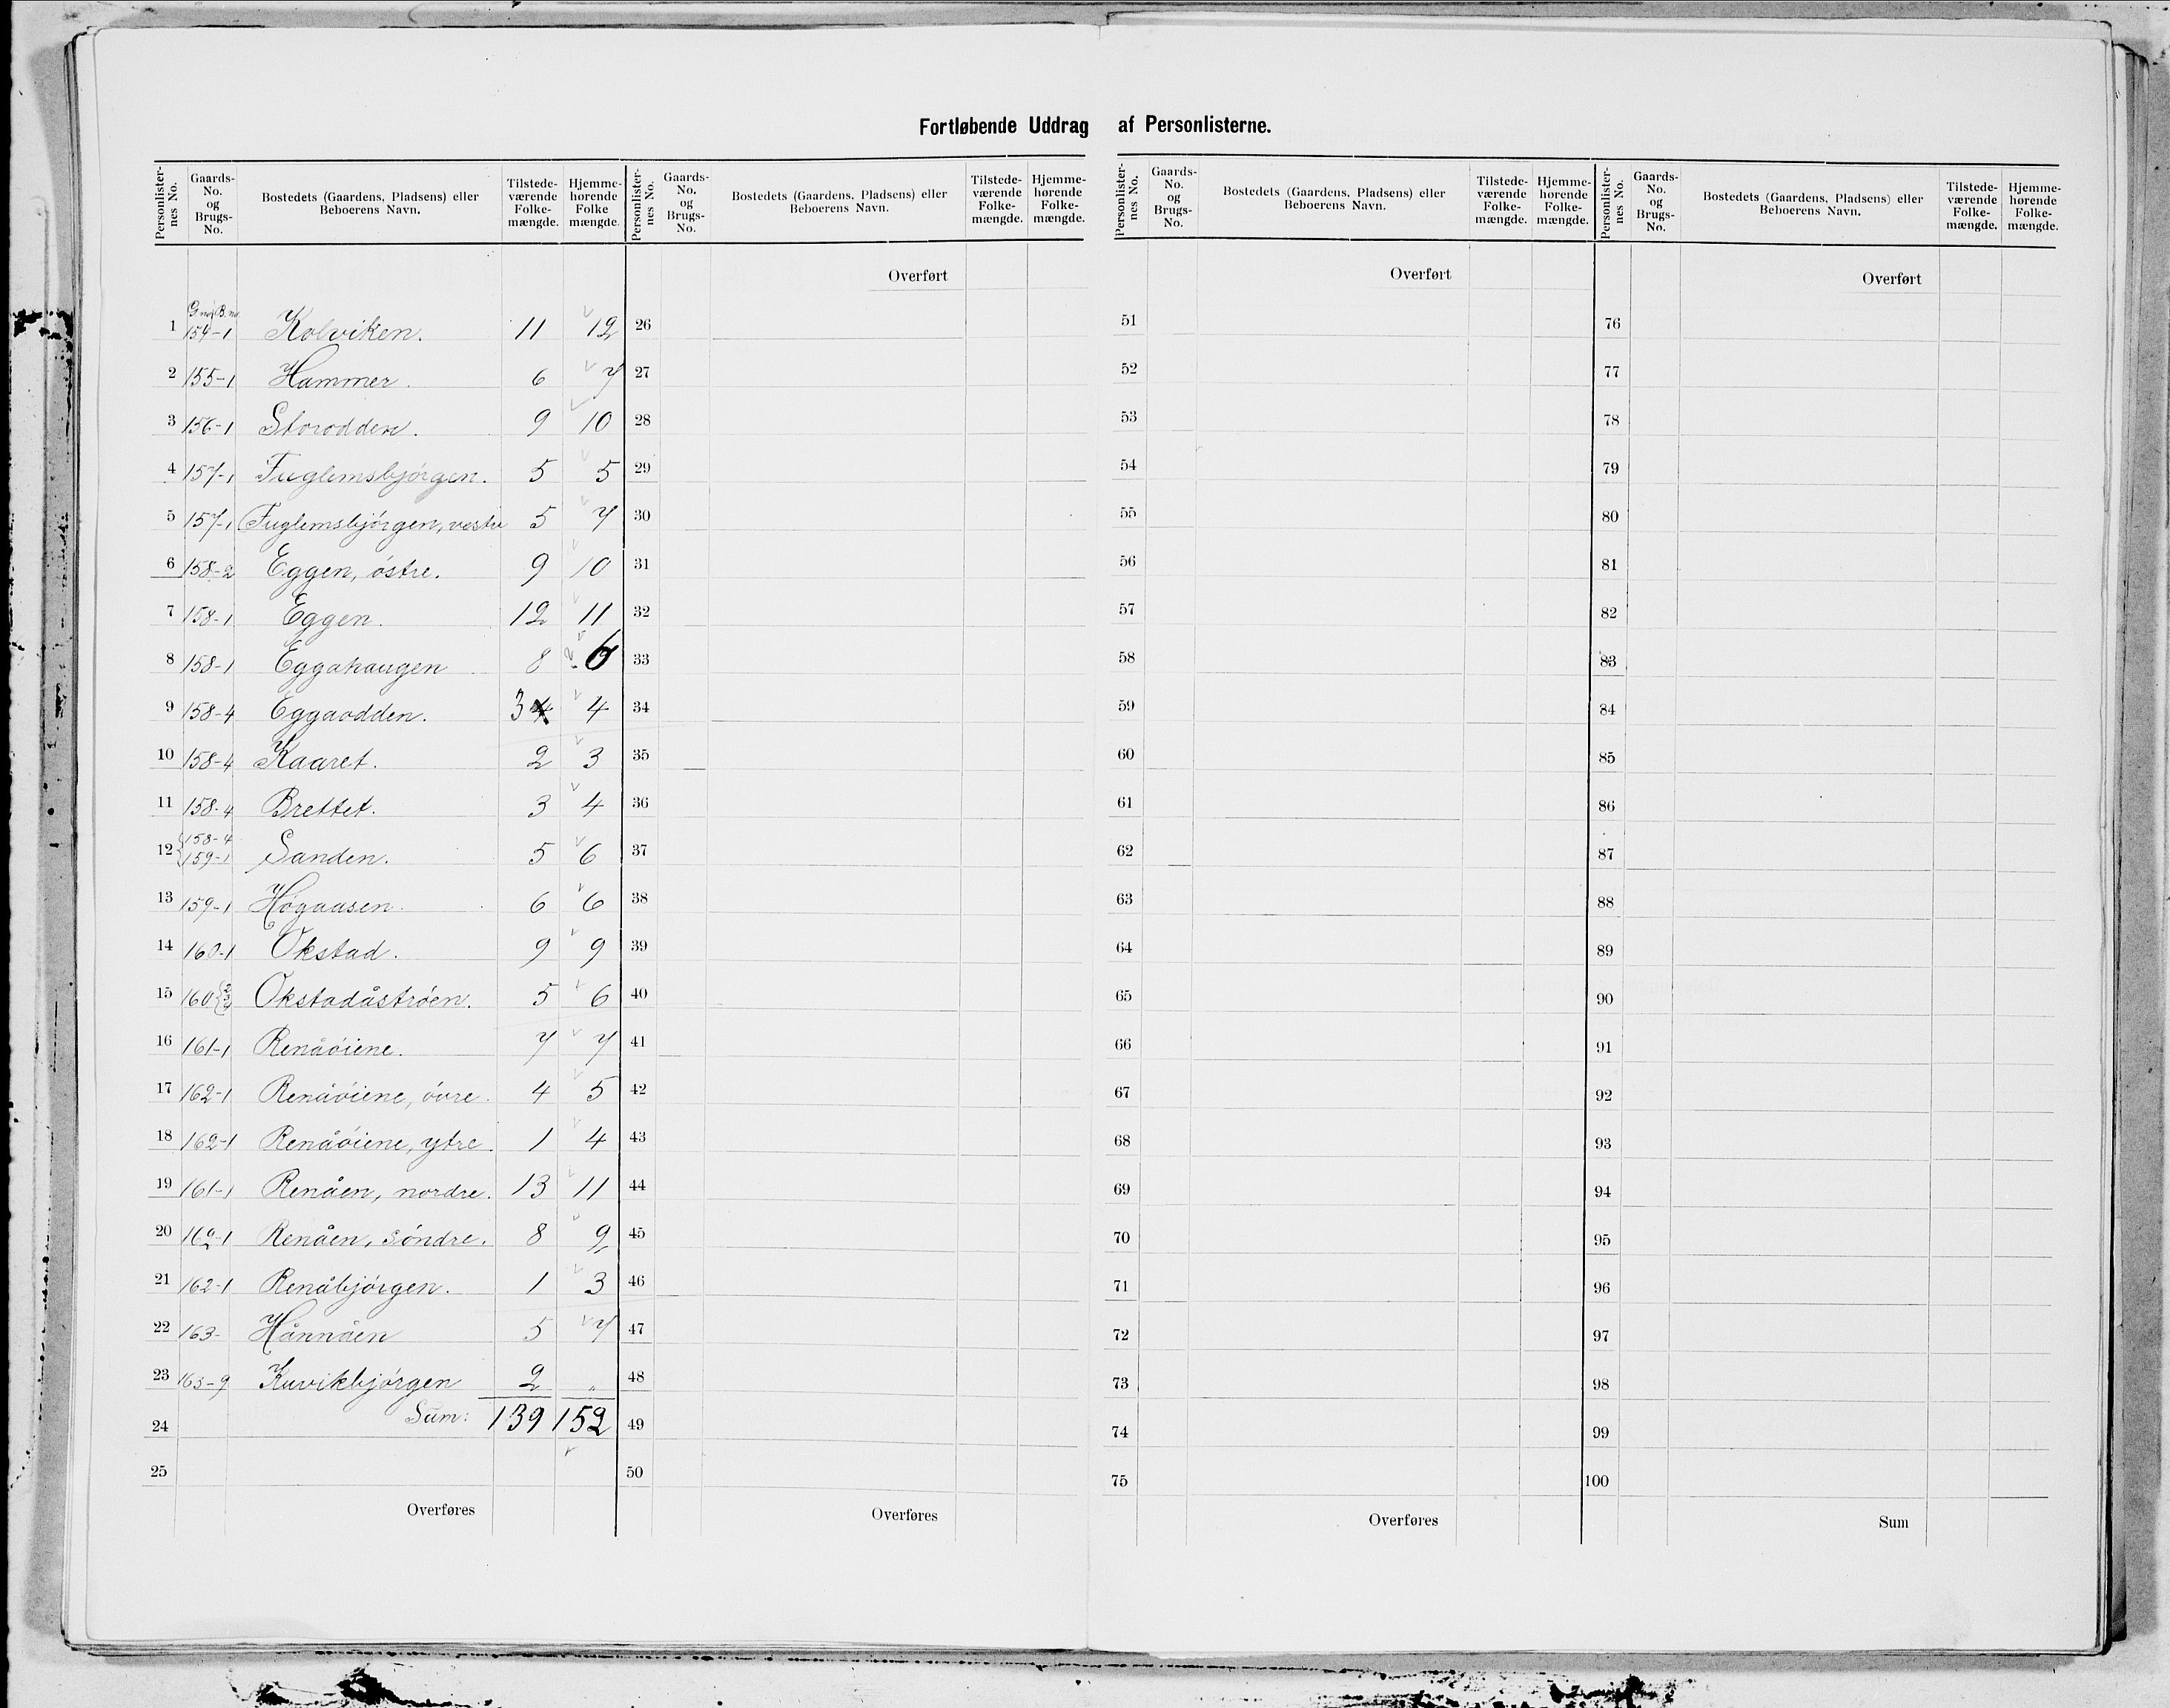 Fortløbende Uddrag af Personlisterne.
Personlister-nes No. Gaards-No. og Brugs-No. Bostedets (Gaardens, Pladsens) eller Beboerens Navn. Tilstede-værende Folke-mængde. Hjemme-hørende Folke mængde.
G.no B.no
1 154-1 Kolviken. 11 12
2 155-1 Hammer. 6 7
3 156-1 Storodden. 9 10
4 157-1 Fuglemsbjörgen. 5 5
5 157-1 Fuglemsbjörgen, vestre 5 7
6 158-2 Eggen, östre. 9 10
7 158-1 Eggen. 12 11
8 158-1 Eggahaugen 8 6
9 158-4 Eggaodden. 3 4
10 158-4 Kaaret. 2 3
11 158-4 Brettet. 3 4
12 158-4 159-1 Sanden. 5 6
13 159-1 Høgaasen. 6 6
14 160-1 Okstad. 9 9
15 160 Okstadåströen. 5 6
16 161-1 Renåöiene. 7 7
17 162-1 Renåöiene, övre. 4 5
18 162-1 Renåöiene, ytre. 1 4
19 161-1 Renåen, nordre. 13 11
20 162-1 Renåen, söndre. 8 9
21 162-1 Renåbjörgen. 1 3
22 163- Hånnåen 5 7
23 163-9 Kuvikbjörgen 2 "
24 Sum: 139 152
25
Overføres
Personlister-nes No. Gaards-No. og Brugs-No. Bostedets (Gaardens, Pladsens) eller Beboerens Navn. Tilstede-værende Folke-mængde. Hjemme-hørende Folke-mængde.
Overført
26
27
28
29
30
31
32
33
34
35
36
37
38
39
40
41
42
43
44
45
46
47
48
49
50
Overføres
Personlister-nes No. Gaards-No. og Brugs-No. Bostedets (Gaardens, Pladsens) eller Beboerens Navn. Tilstede-værende Folke-mængde. Hjemme-hørende Folke-mængde.
Overført
51
52
53
54
55
56
57
58
59
60
61
62
63
64
65
66
67
68
69
70
71
72
73
74
75
Overføres
Personlister-nes No. Gaards-No. og Brugs-No. Bostedets (Gaardens, Pladsens) eller Beboerens Navn. Tilstede-værende Folke-mængde. Hjemme-hørende Folke-mængde.
Overført
76
77
78
79
80
81
82
83
84
85
86
87
88
89
90
91
92
93
94
95
96
97
98
99
100
Sum